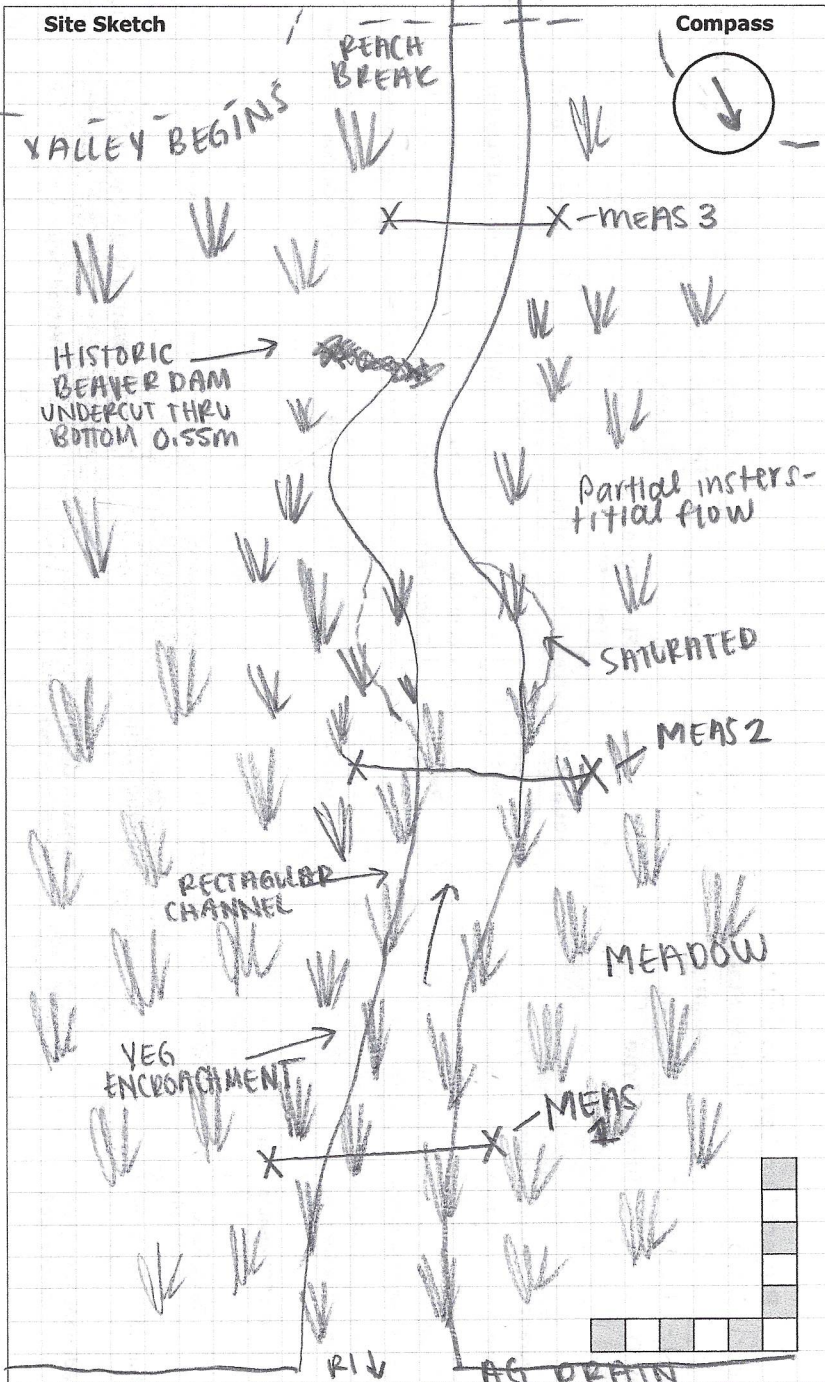 Site Sketch
Compass
REACH
BREAK
VALLEY BEGINS
X
X - MEAS 3
HISTORIC
BEAVER DAM
UNDERCUT THRU
BOTTOM 0.55m
Partial insters-
titial flow
SATURATED
MEAS 2
X
X
RECTAGULAR
CHANNEL
MEADOW
VEG
ENCROACHMENT
MEAS
1
X
X
R1↓
AG DRAIN